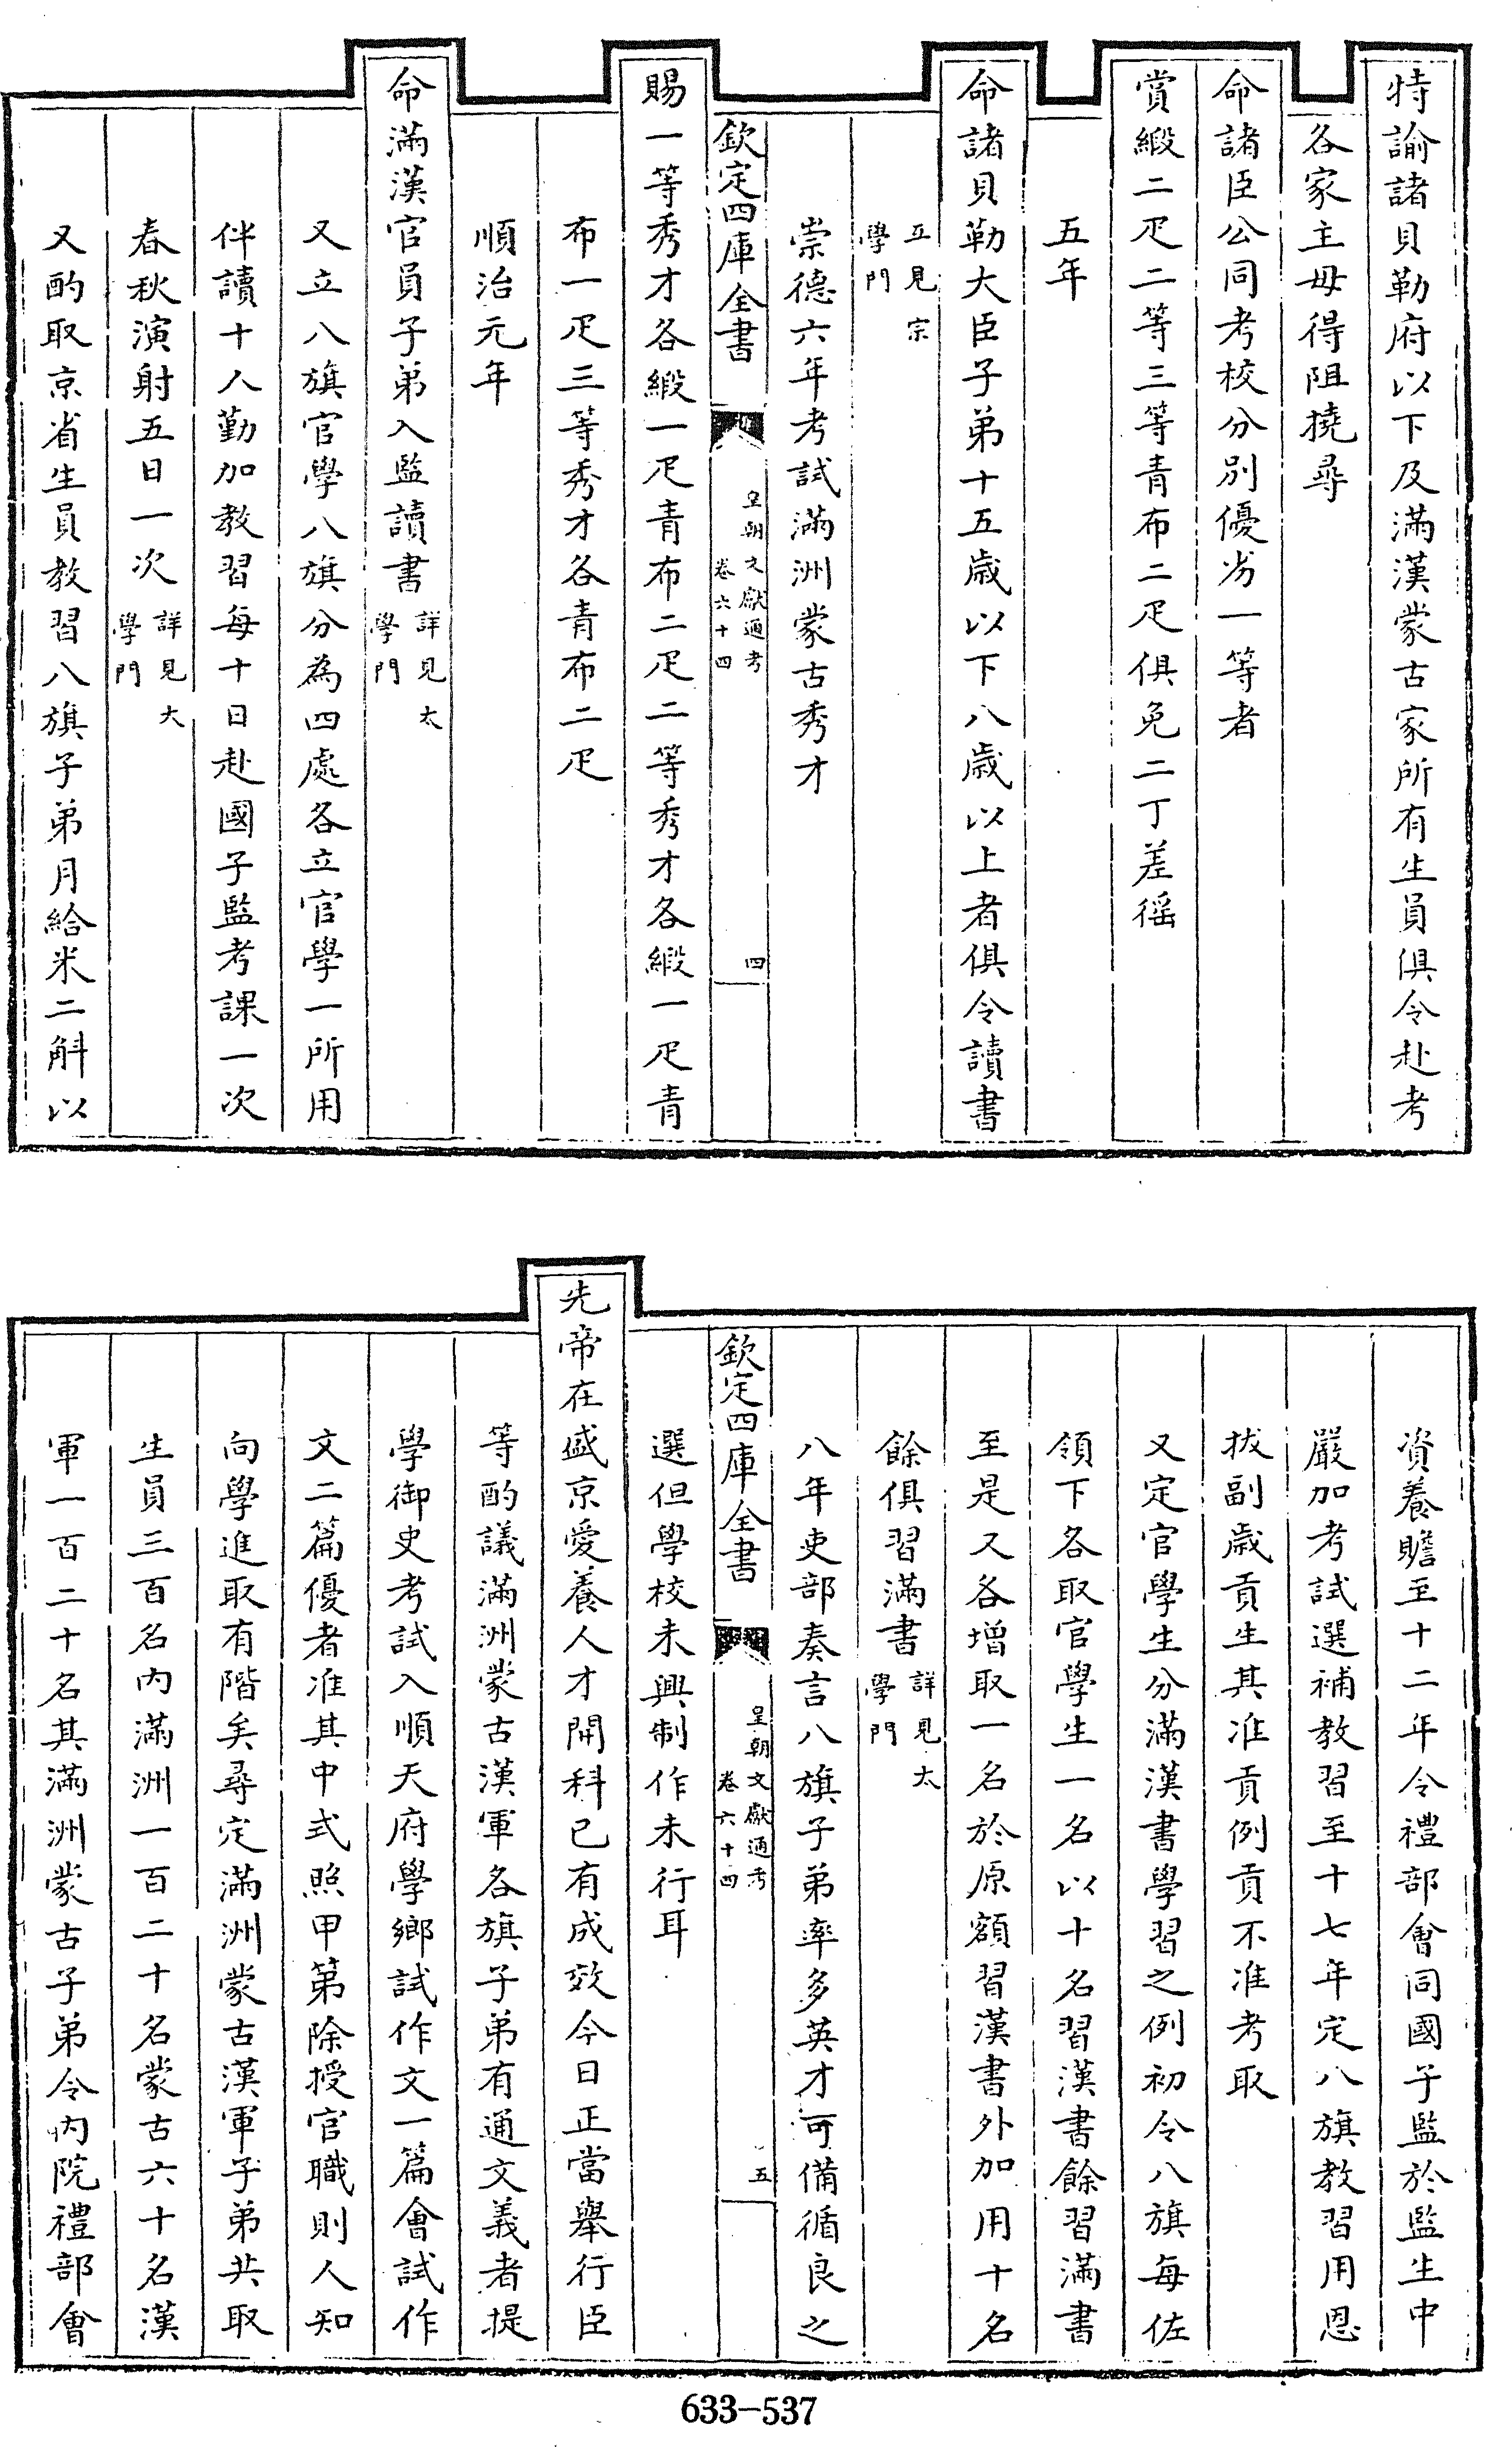 特諭諸貝勒府以下及滿漢蒙古家所有生員俱令赴考
各家主毋得阻撓尋
命諸臣公同考校分別優劣一等者
賞緞二疋二等三等青布二疋俱免二丁差徭
五年
命諸貝勒大臣子弟十五歲以下八歲以上者俱令讀書
互見宗
學門
崇德六年考試滿洲蒙古秀才
欽定四庫全書
皇朝文獻通考
卷六十四
四
賜一等秀才各緞一疋青布二疋二等秀才各緞一疋青
布一疋三等秀才各青布二疋
順治元年
命滿漢官員子弟入監讀書
詳見太
學門
又立八旗官學八旗分為四處各立官學一所用
伴讀十人勤加教習每十日赴國子監考課一次
春秋演射五日一次
詳見大
學門
又酌取京省生員教習八旗子弟月給米二斛以
資養贍至十二年令禮部會同國子監於監生中
嚴加考試選補教習至十七年定八旗教習用恩
拔副歲貢生其准貢例貢不准考取
又定官學生分滿漢書學習之例初令八旗每佐
領下各取官學生一名以十名習漢書餘習滿書
至是又各增取一名於原額習漢書外加用十名
餘俱習滿書
詳見太
學門
八年吏部奏言八旗子弟率多英才可備循良之
欽定四庫全書
皇朝文獻通考
卷六十四
五
選但學校未興制作未行耳
先帝在盛京愛養人才開科已有成效今日正當舉行臣
等酌議滿洲蒙古漢軍各旗子弟有通文義者提
學御史考試入順天府學鄉試作文一篇會試作
文二篇優者准其中式照甲第除授官職則人知
向學進取有階矣尋定滿洲蒙古漢軍子弟共取
生員三百名內滿洲一百二十名蒙古六十名漢
軍一百二十名其滿洲蒙古子弟令內院禮部會
633-537